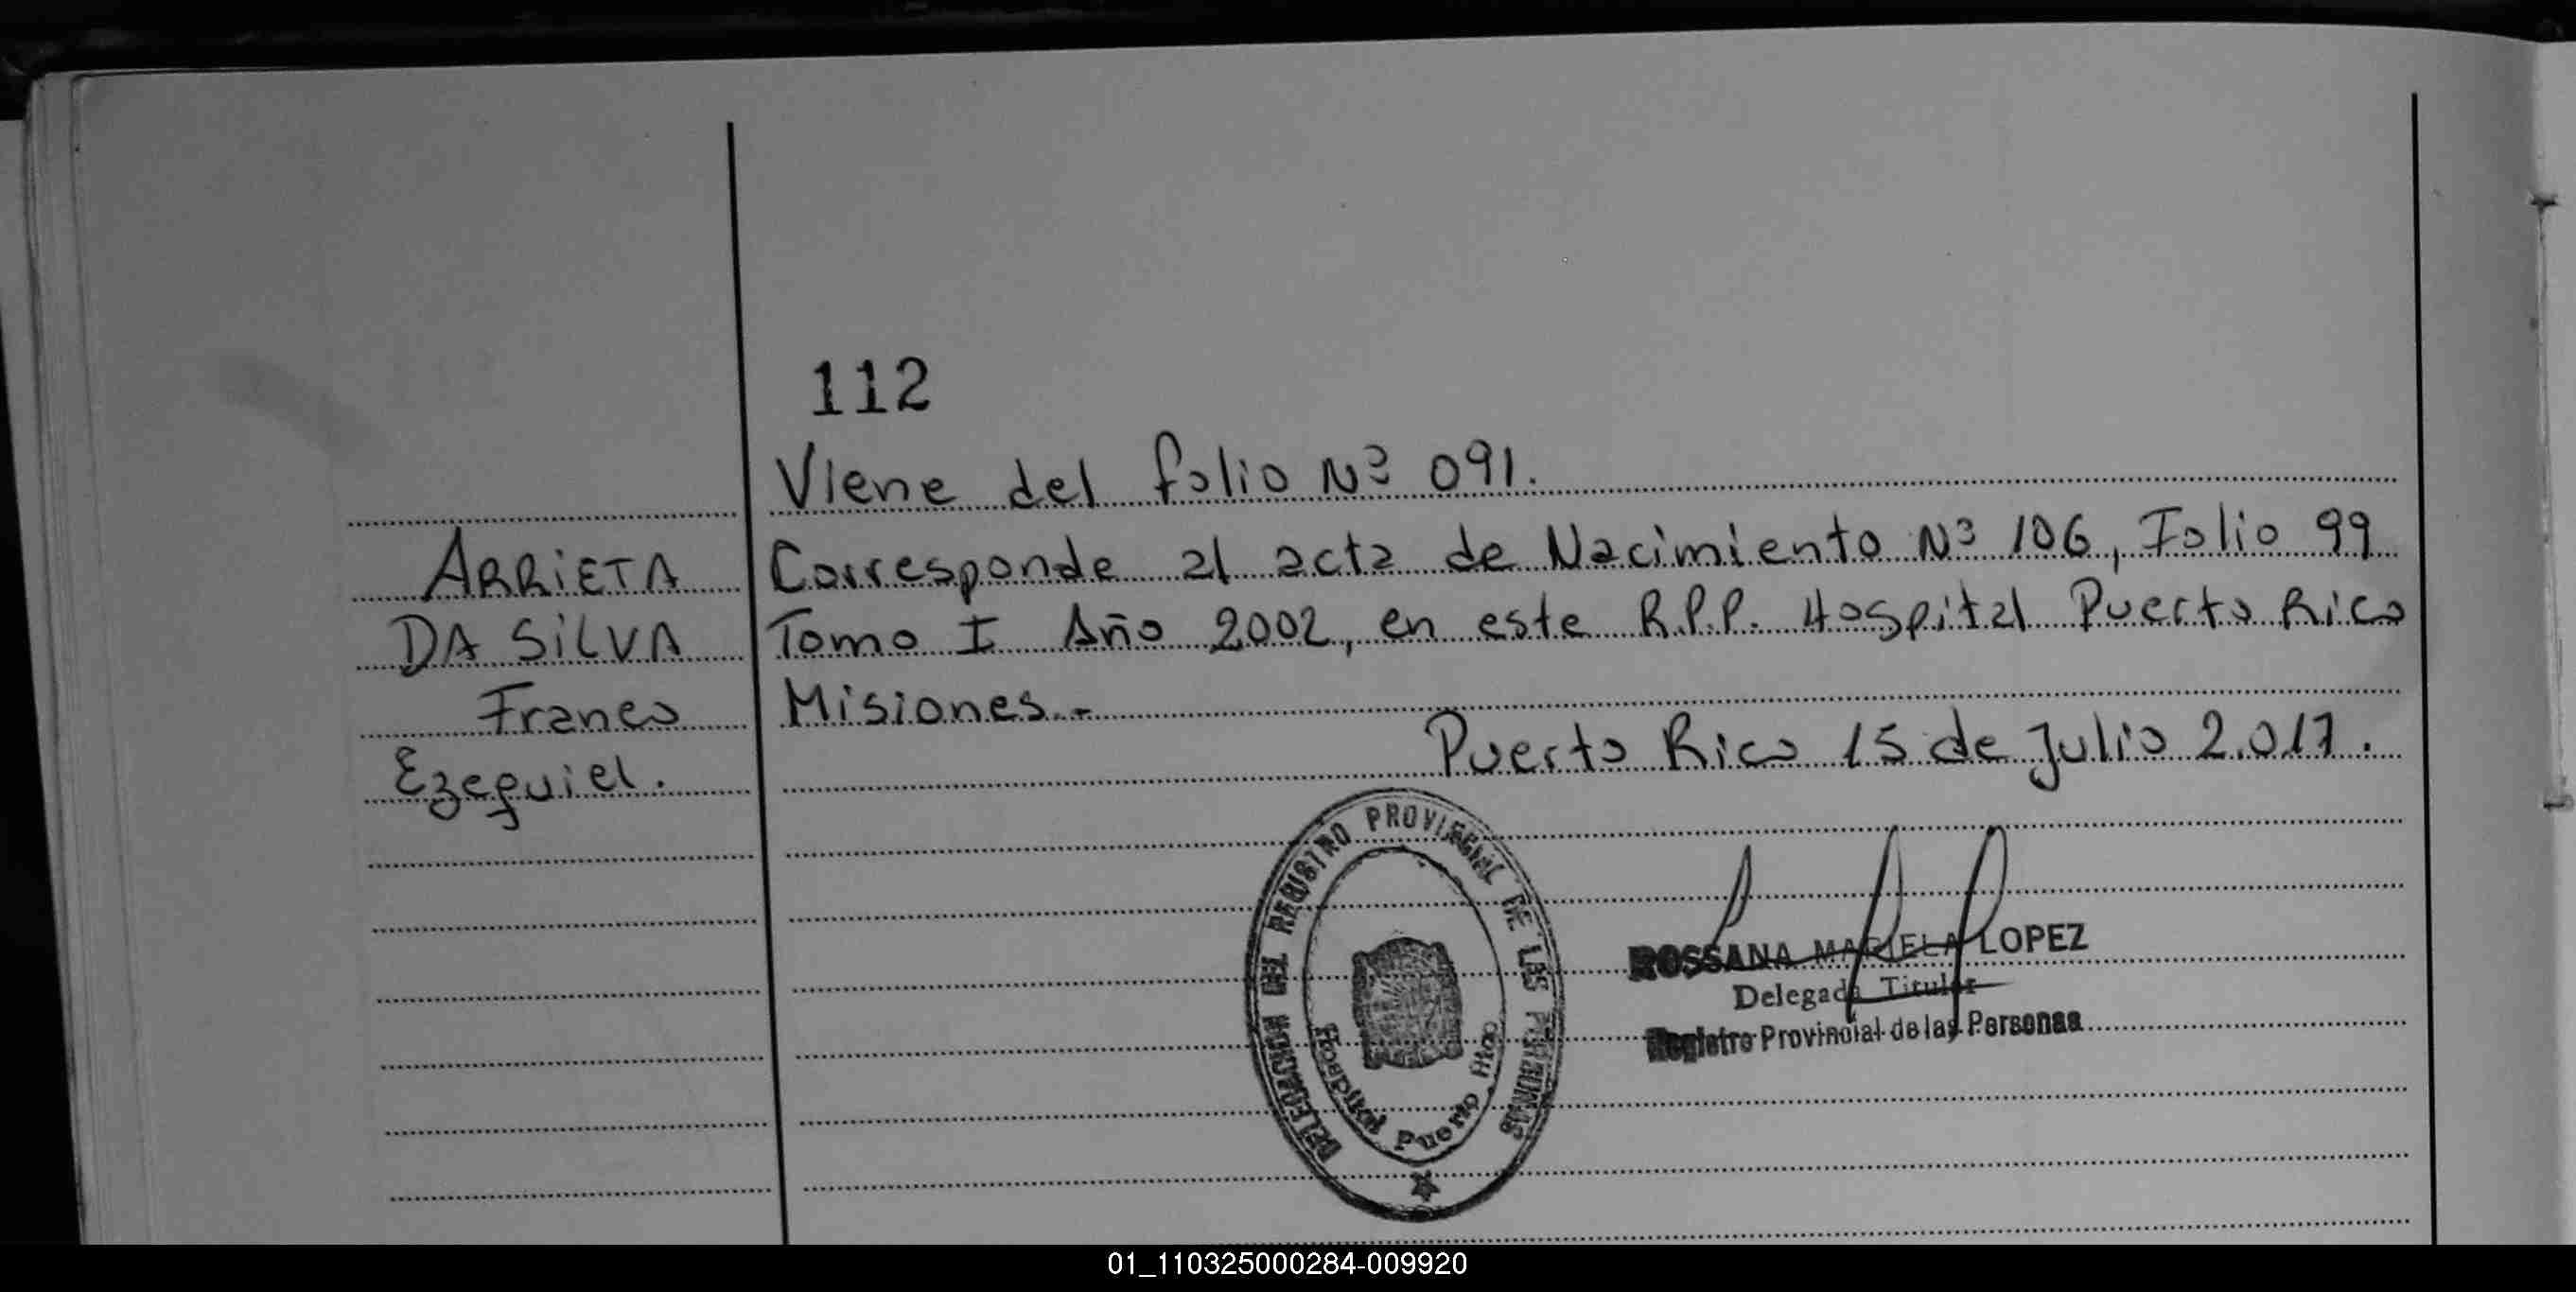 112
Viene del folio Nº 091.
ARRIETA
DA SILVA
Franco
Ezequiel.
Corresponde al acta de Nacimiento Nº 106, Folio 99
Tomo I Año 2002, en este R.P.P. Hospital Puerto Rico
Misiones.-
Puerto Rico 15 de Julio 2.017.
DELEGACION DEL REGISTRO PROVINCIAL DE LAS PERSONAS
Hospital Puerto Rico
ROSSANA MARIELA LOPEZ
Delegada Titular
Registro Provincial de las Personas
01_110325000284-009920